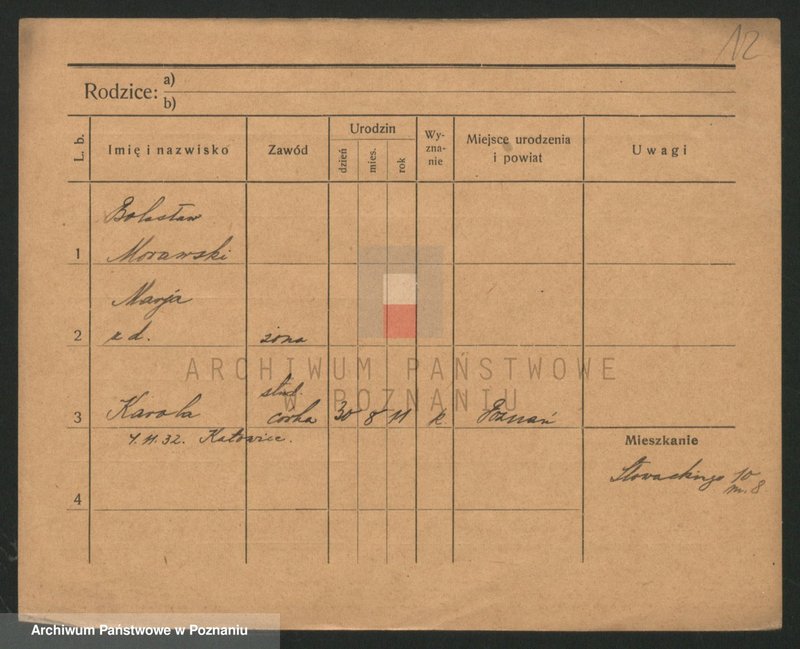 12
Rodzice: a)
b)
L. b.
Imię i nazwisko
Zawód
Urodzin
dzień
mies.
rok
Wy-
zna-
nie
Miejsce urodzenia
i powiat
Uwagi
Bolesław
1 Morawski
Marja
2 z d. żona
stud.
3 Karola córka 30 8 11 k Poznań
4.11.32. Katowice.
Mieszkanie
Słowackiego 10
m. 8
4
ARCHIWUM PAŃSTWOWE
W POZNANIU
Archiwum Państwowe w Poznaniu